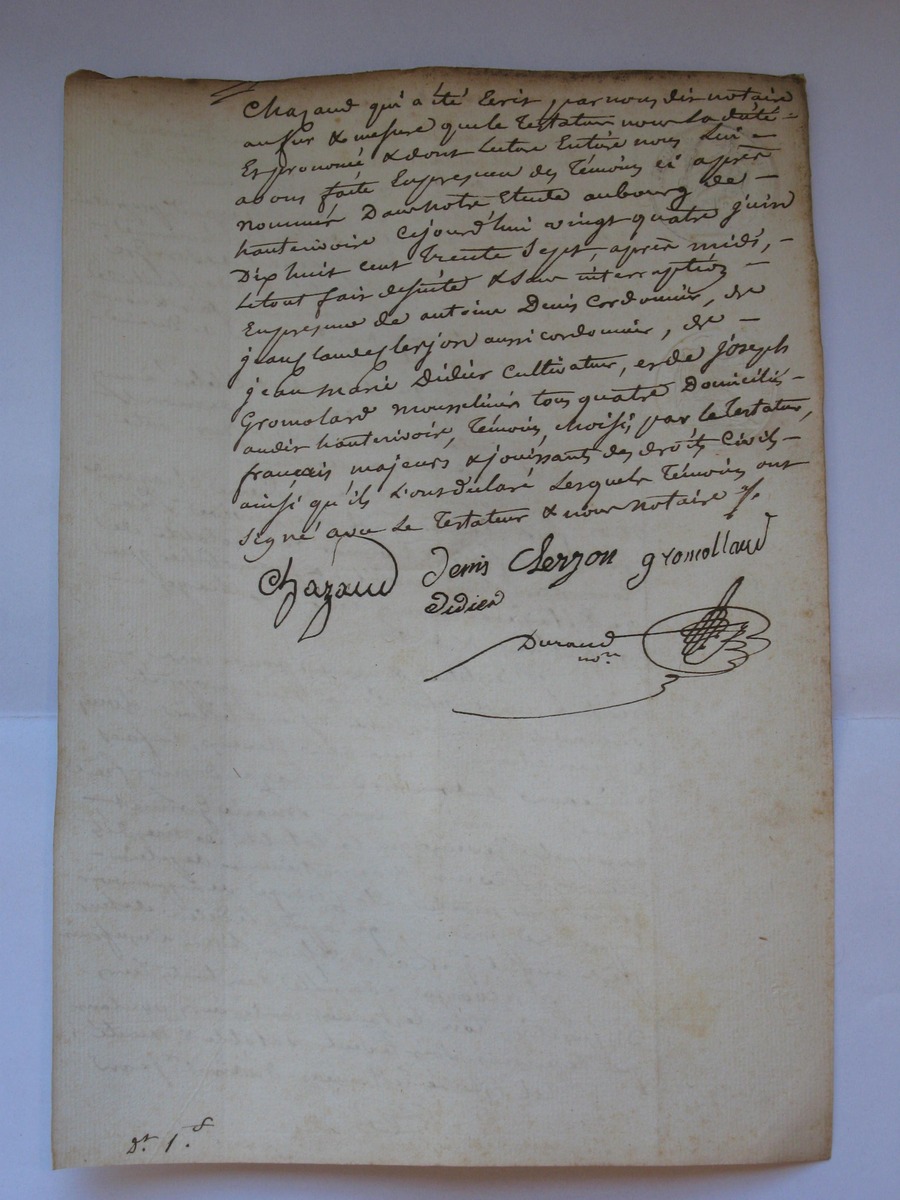 Chazaud qui a été Ecrit, par nous dit notaire
au fur & mesure que le Testateur nous la dicté
Et prononcé & dont Lecture Entière nous Lui -
avons faite En presence des Témoins ci après
nommés Dans notre Etude au bourg de -
hauterivoire cejourd'hui vingt quatre juin
Dix huit cent trente Sept, après midi, -
Le tout fait de suite & sans interruption -
En presence de antoine Denis Cordonnier, de
jean Claude Clerjon aussi cordonnier, de -
jean marie Didier Cultivateur, et de joseph
Gromolard mousselinier tous quatre Domiciliés -
audit hauterivoire, Témoins choisis par le Testateur,
français majeurs & jouissants des droits Civils -
ainsi qu'ils L'ont déclaré Lesquels Témoins ont
signé avec Le Testateur & nous notaire ./.
Chazaud Denis Clerzon gromollaud
Didier
Durand
nore
Dt. 1.